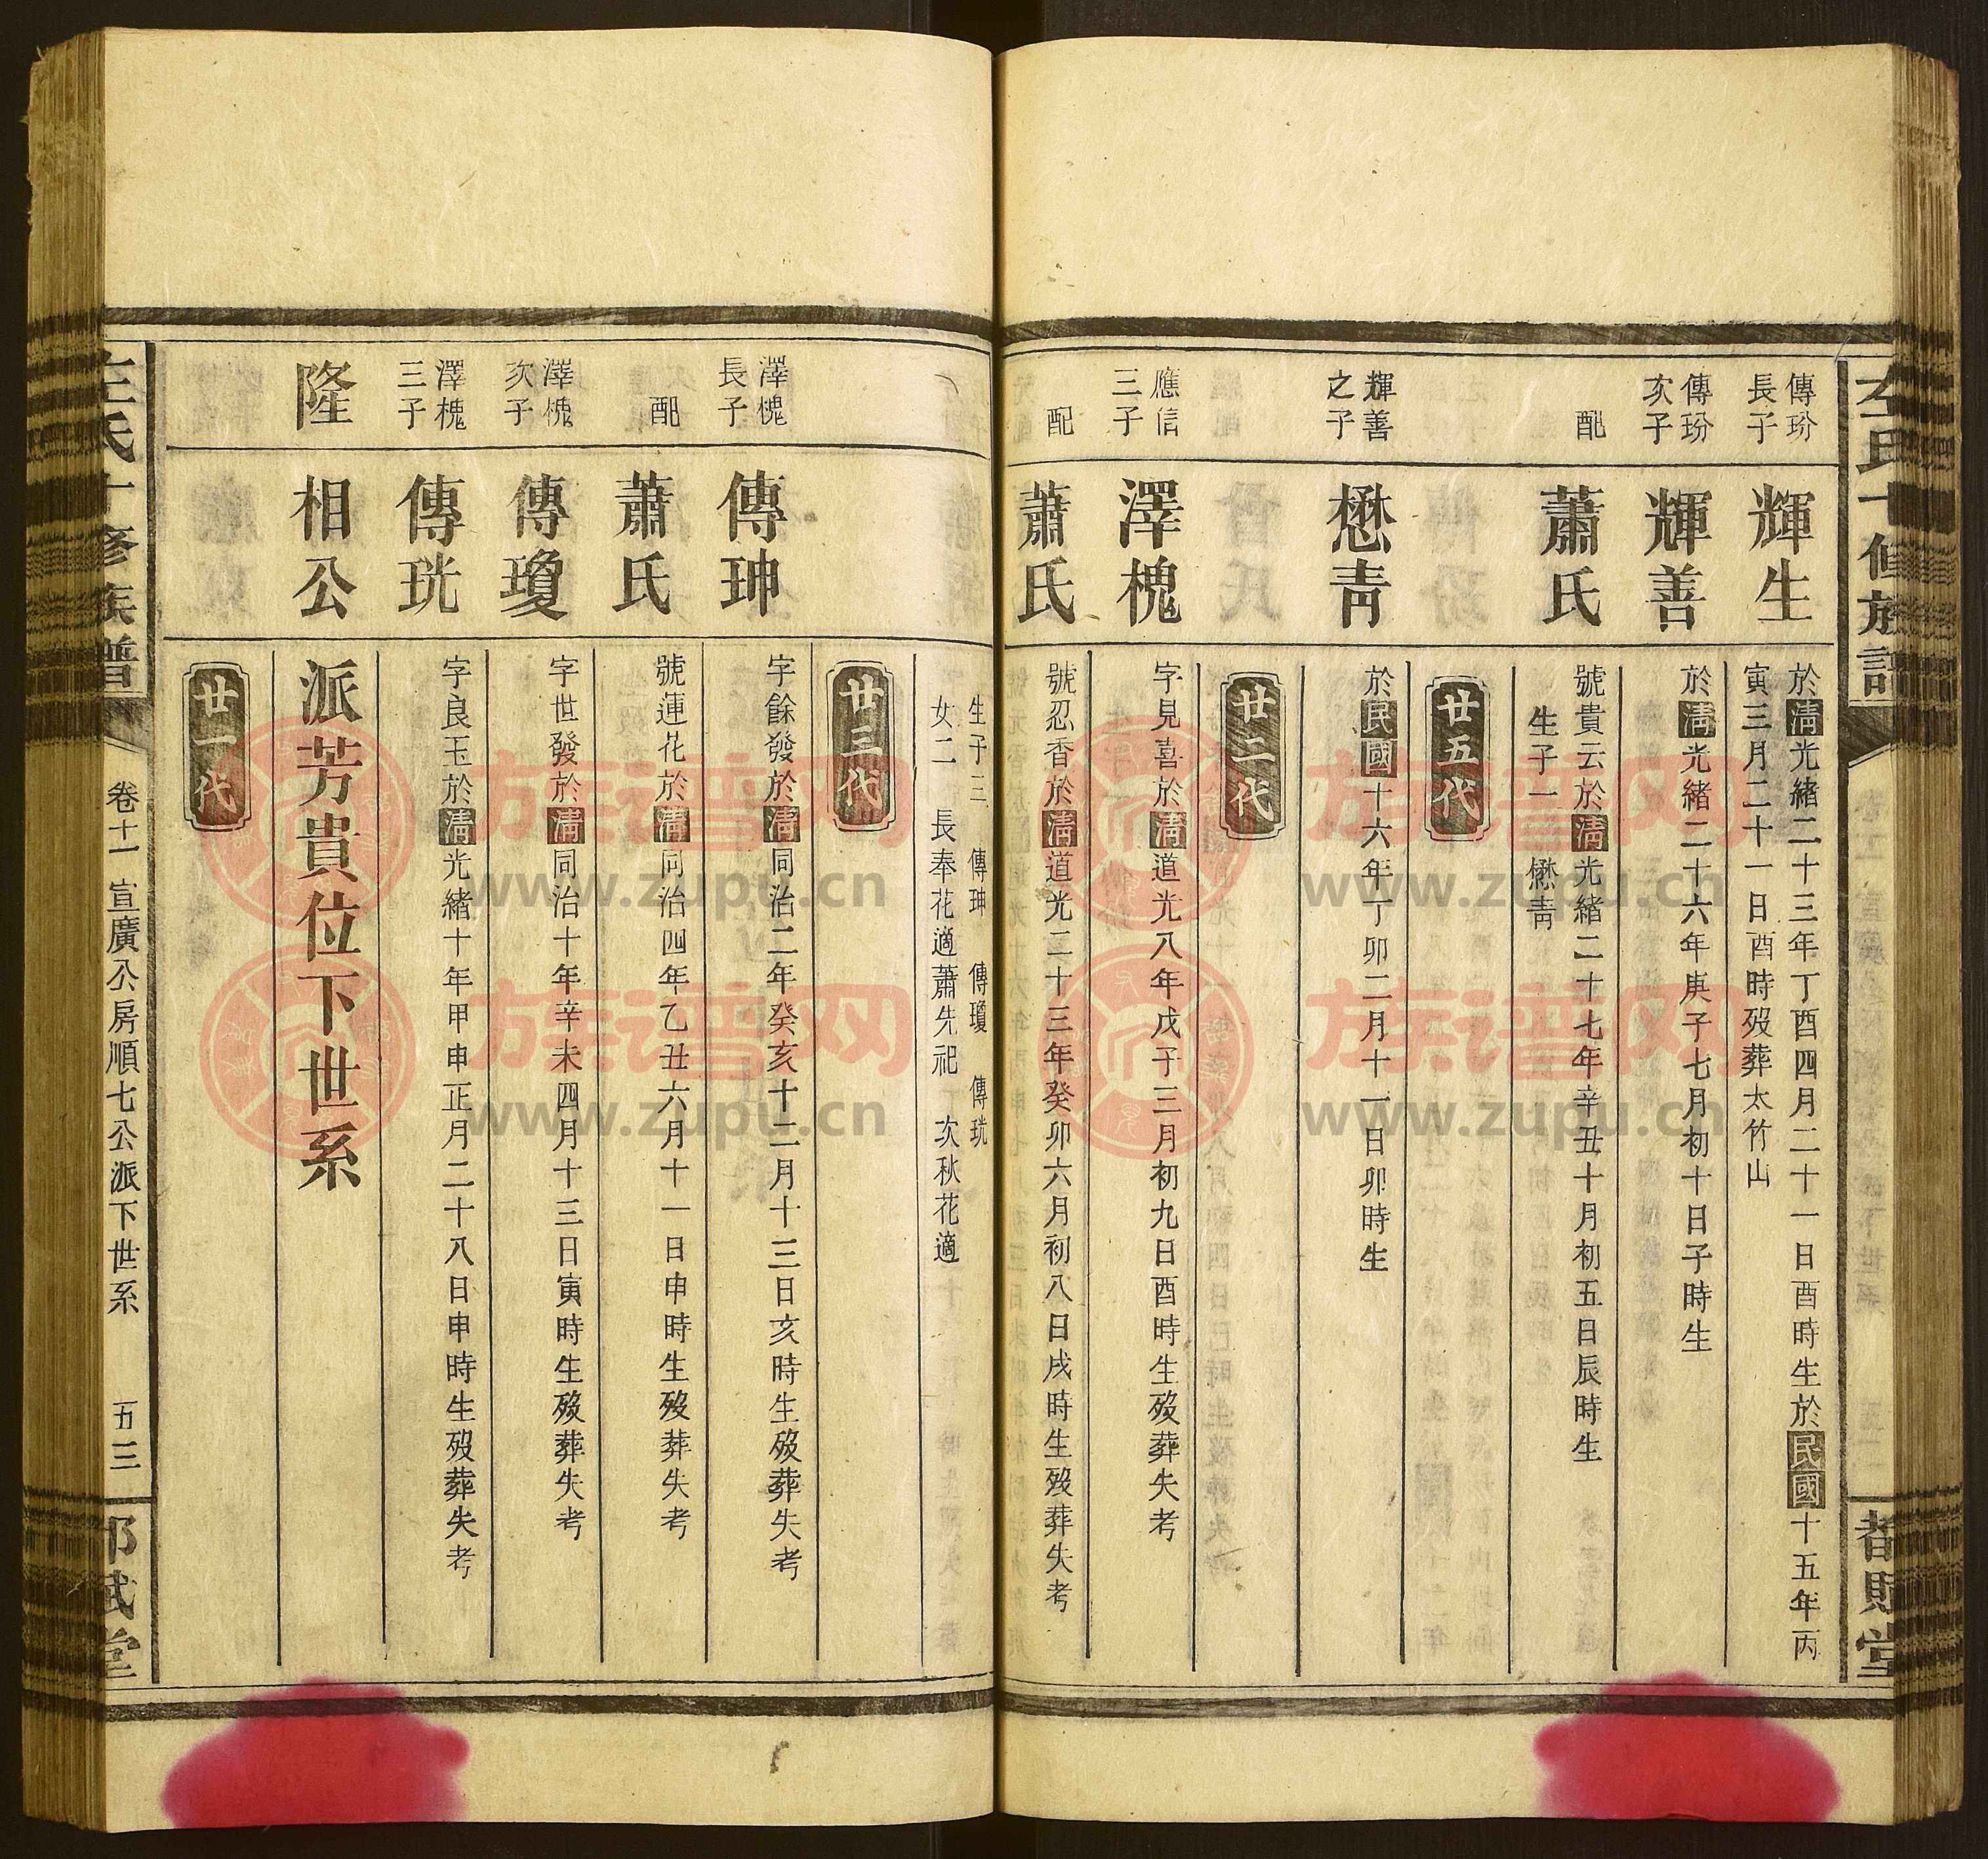 左氏十修族譜
都賦堂
傳玢
長子
輝生
於清光緒二十三年丁酉四月二十一日酉時生於民國十五年丙
寅三月二十一日酉時歿葬太竹山
傳玢
次子
輝善
於清光緒二十六年庚子七月初十日子時生
配
蕭氏
號貴云於清光緒二十七年辛丑十月初五日辰時生
生子一 懋靑
廿五代
輝善
之子
懋靑
於民國十六年丁卯二月十一日卯時生
廿二代
應信
三子
澤槐
字見喜於清道光八年戊子三月初九日酉時生歿葬失考
配
蕭氏
號忍香於清道光二十三年癸卯六月初八日戌時生歿葬失考
生子三 傳珅 傳瓊 傳珖
女二 長奉花適蕭先祀 次秋花適
廿三代
澤槐
長子
傳珅
字餘發於清同治二年癸亥十二月十三日亥時生歿葬失考
配
蕭氏
號運花於清同治四年乙丑六月十一日申時生歿葬失考
澤槐
次子
傳瓊
字世發於清同治十年辛未四月十三日寅時生歿葬失考
澤槐
三子
傳珖
字良玉於清光緒十年甲申正月二十八日申時生歿葬失考
隆相公派芳貴位下世系
廿一代
左氏十修族譜
卷十一 宣廣公房順七公派下世系
五三
族谱网
www.zupu.cn
族谱网
www.zupu.cn
族谱网
www.zupu.cn
族谱网
www.zupu.cn